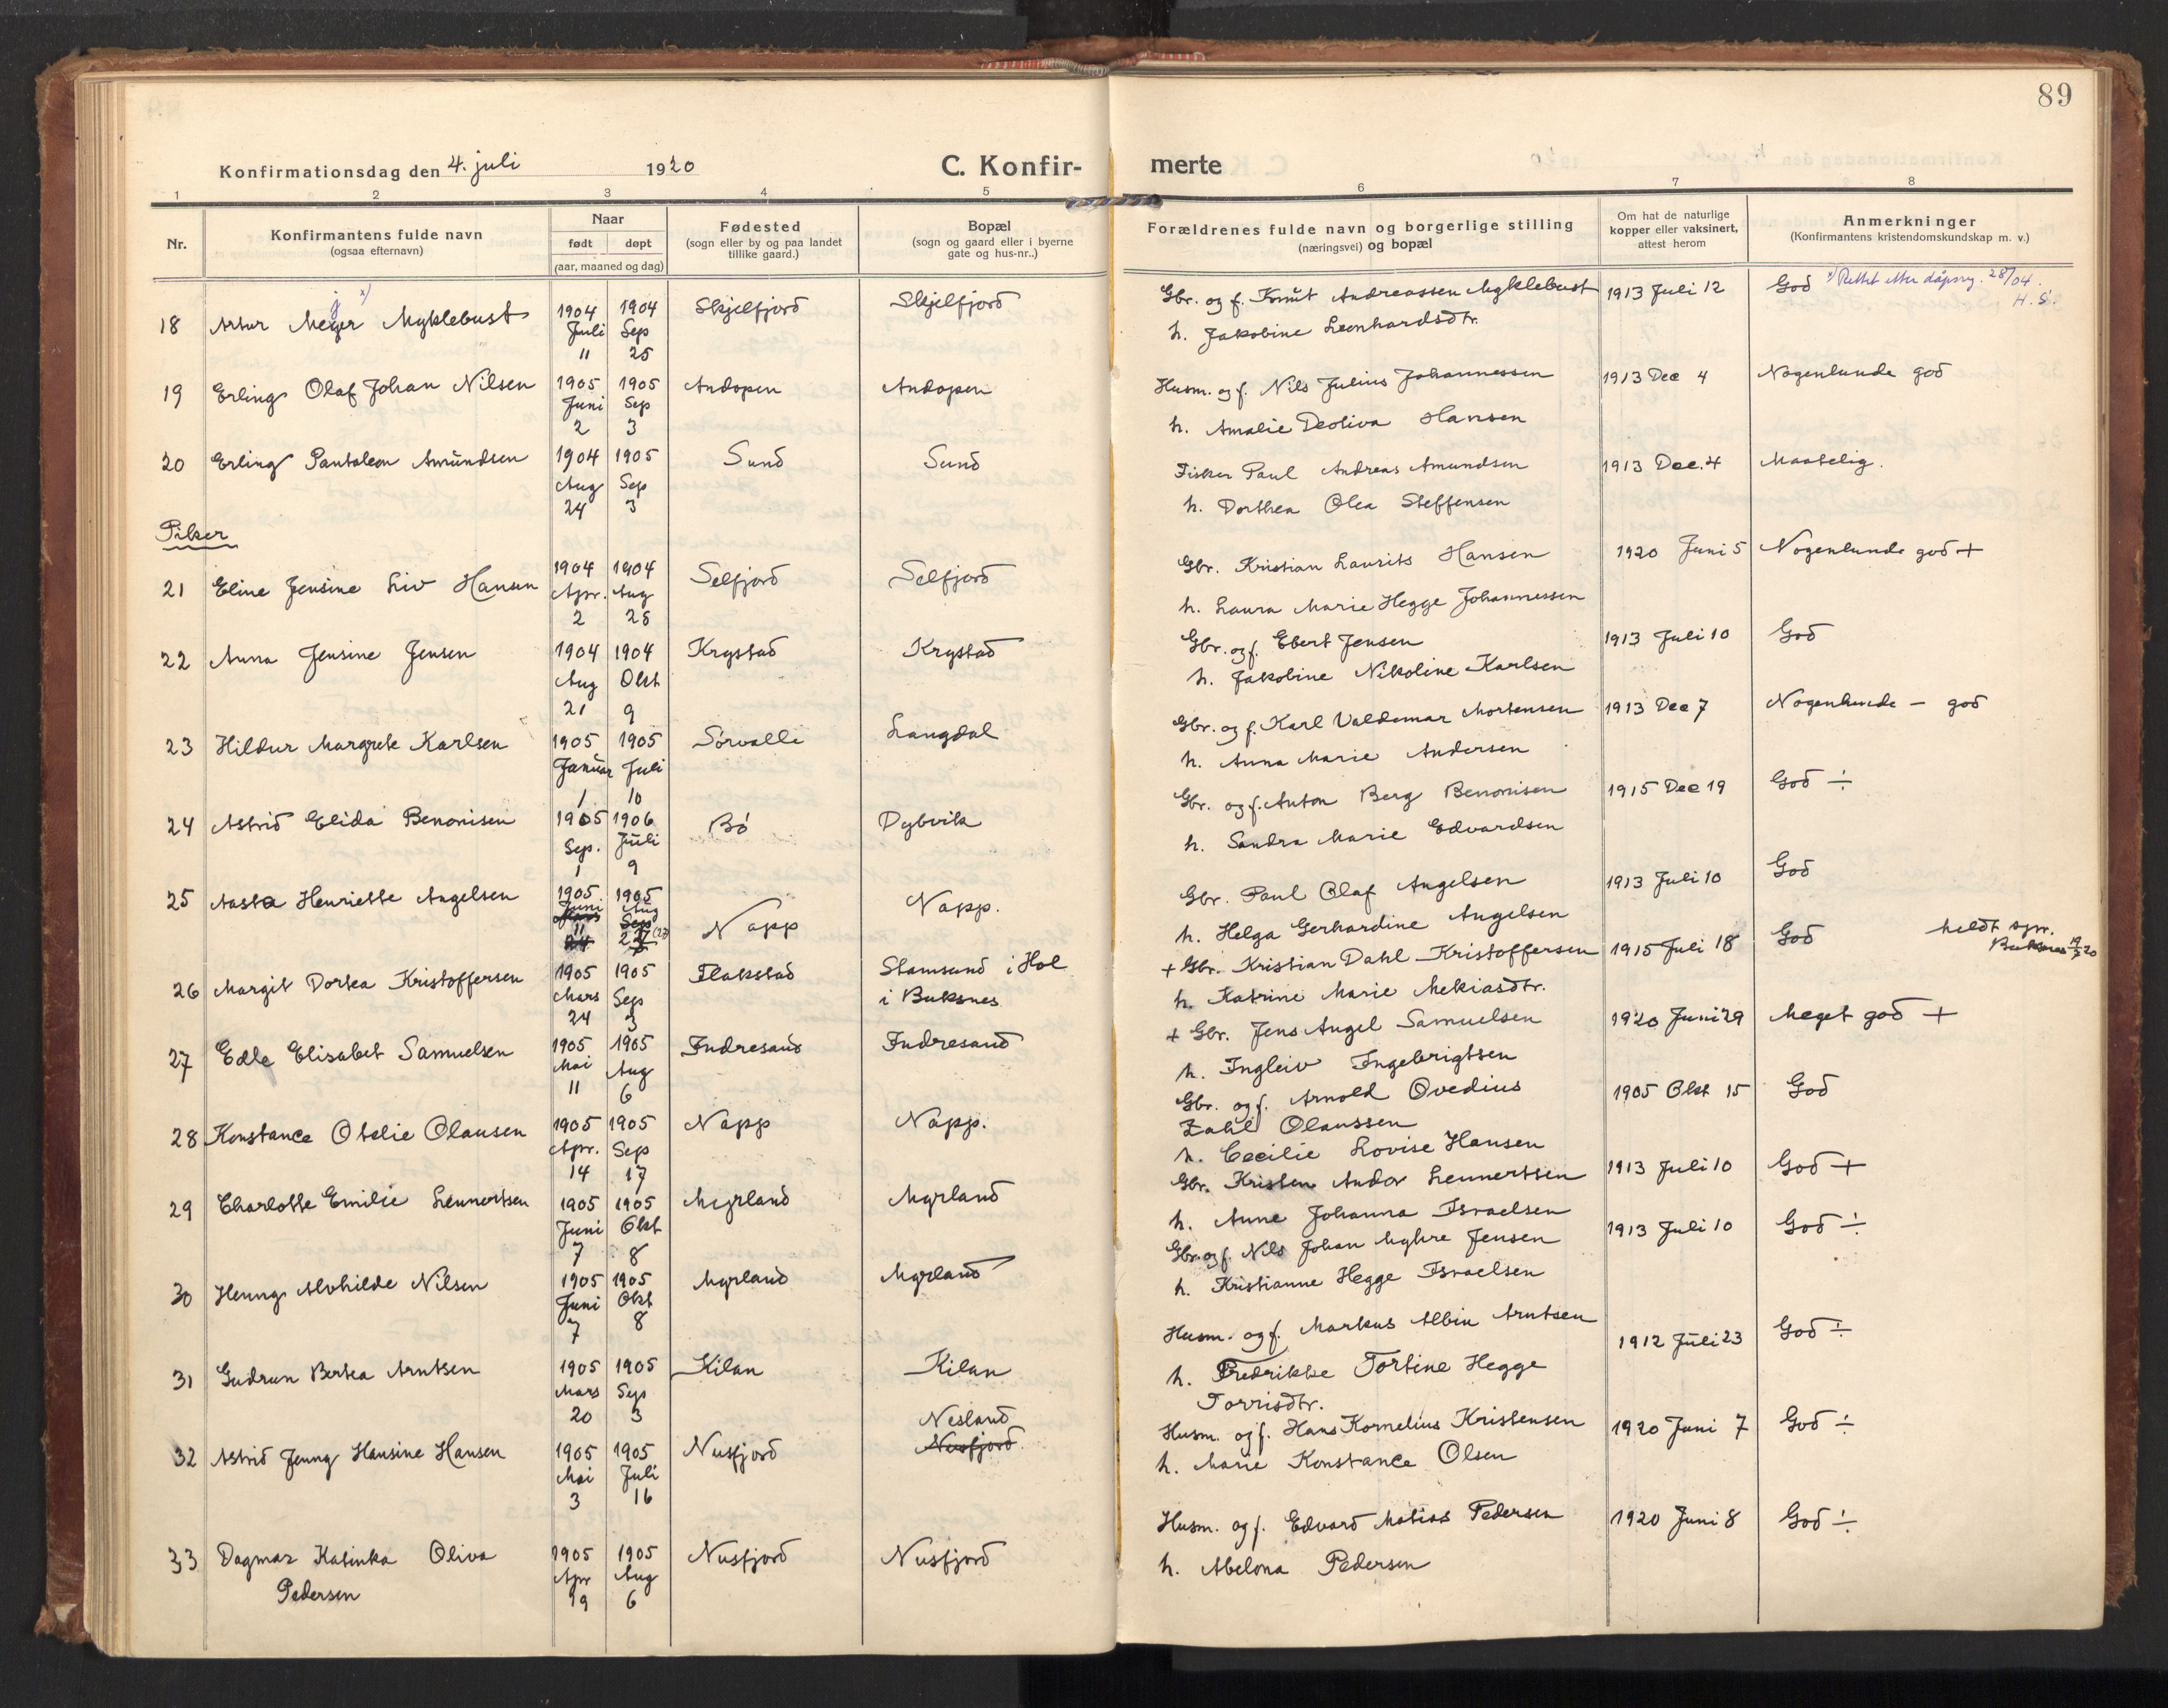 89
Konfirmationsdag den 4. juli 1920 C. Konfirmerte
1 2 3 4 5 6 7 8
Nr.
Konfirmantens fulde navn
(ogsaa efternavn)
Naar
født døpt
(aar, maaned og dag)
Fødested
(sogn eller by og paa landet
tillike gaard.)
Bopæl
(sogn og gaard eller i byerne
gate og hus-nr..)
Forældrenes fulde navn og borgerlige stilling
(næringsvei) og bopæl
Om hat de naturlige
kopper eller vaksinert,
attest herom
Anmerkninger
(Konfirmantens kristendomskundskap m. v.)
j x)
18 Artur Meyer Myklebust 1904 Juli 11 1904 Sep 25 Skjelfjord Skjelfjord Gbr. og f. Knut Andreassen Myklebust 1913 Juli 12 God x) Rettet etter dåpsreg. 28/04. H. S.
h. Jakobine Leonhardsdtr.
19 Erling Olaf Johan Nilsen 1905 Juni 2 1905 Sep 3 Andopen Andopen Husm. og f. Nils Julius Johannessen 1913 Dec 4 Nogenlunde god
h. Amalie Deoliva Hansen
20 Erling Pantaleon Amundsen 1904 Aug 24 1905 Sep 3 Sund Sund Fisker Paul Andreas Amundsen 1913 Dec. 4 Maatelig.
h. Dorthea Olea Steffensen
Piker
21 Eline Jensine Liv Hansen 1904 Apr. 2 1904 Aug 28 Selfjord Selfjord Gbr. Kristian Laurits Hansen 1920 Juni 5 Nogenlunde god +
h. Laura Marie Hegge Johannessen
22 Anna Jensine Jensen 1904 Aug 21 1904 Okt 9 Krystad Krystad Gbr. og f. Ebert Jensen 1913 Juli 10 God
h. Jakobine Nikoline Karlsen
23 Hildur Margrete Karlsen 1905 Januar 1 1905 Juli 10 Sørvalle Langdal Gbr. og f. Karl Valdemar Mortensen 1913 Dec 7 Nogenlunde — god
h. Anna Marie Andersen
24 Astrid Elida Benonisen 1905 Sep. 1 1906 Juli 9 Bø Dybvik Gbr. og f. Anton Berg Benonisen 1915 Dec 19 God ÷
h. Sandra Marie Edvardsen
25 Aasta Henriette Angelsen 1905 Juni 11 1905 Aug 27 (27) Napp Napp. Gbr. Paul Olaf Angelsen 1913 Juli 10 God
h. Helga Gerhardine Angelsen
26 Margit Dortea Kristoffersen 1905 Mars 24 1905 Sep 3 Flakstad Stamsund i Hol i Buksnes + Gbr. Kristian Dahl Kristoffersen 1915 Juli 18 God meldt spr. Buksnes
h. Katrine Marie Mekiasdtr.
27 Edle Elisabet Samuelsen 1905 Mai 11 1905 Aug 6 Indresand Indresand + Gbr. Jens Angel Samuelsen 1920 Juni 29 Meget god +
h. Ingleiv Ingebrigtsen
28 Konstance Otelie Olausen 1905 Apr. 14 1905 Sep 17 Napp Napp. Gbr. og f. Arnold Ovedius 1905 Okt 15 God
Zahl Olaussen
h. Cecilie Lovise Hansen
29 Charlotte Emilie Lennertsen 1905 Juni 7 1905 Okt 8 Myrland Myrland Gbr. Kristen Andor Lennertsen 1913 Juli 10 God +
h. Anne Johanna Israelsen
30 Henny Alvhilde Nilsen 1905 Juni 7 1905 Okt 8 Myrland Myrland Gbr. og f. Nils Johan Myhre Jensen 1913 Juli 10 God ÷
h. Kristianne Hegge Israelsen
31 Gudrun Bertea Arntsen 1905 Mars 20 1905 Sep 3 Kilan Kilan Husm. og f. Markus Albin Arntsen 1912 Juli 23 God ÷
h. Fredrikke Tortine Hegge
Torrisdtr.
32 Astrid Jenny Hansine Hansen 1905 Mai 3 1905 Juli 16 Nusfjord Nesland Nusfjord Husm. og f. Hans Kornelius Kristensen 1920 Juni 7 God ÷
h. Marie Konstance Olsen
33 Dagmar Katinka Oliva Pedersen 1905 Apr 19 1905 Aug 6 Nusfjord Nusfjord Husm. og f. Edvard Matias Pedersen 1920 Juni 8 God ÷
h. Abelona Pedersen